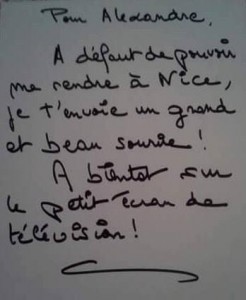 Pour Alexandre,
A défaut de pouvoir
me rendre à Nice,
je t'envoie un grand
et beau sourire !
A bientôt sur
le petit écran de
télévision !